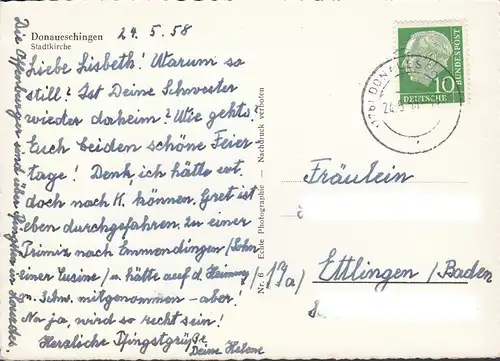 Donaueschingen 24. 5. 58
Stadtkirche
Liebe Lisbeth! Warum so
still? Ist Deine Schwester
wieder daheim? Wie gehts.
Euch beiden schöne Feier
tage! Denk, ich hätte evt.
doch nach K. können, Gret ist
eben durchgefahren. Zu einer
Primiz nach Emmendingen (Sohn
einer Cusine) u. hätte auf d. Heimweg
mitgenommen - aber!
Na ja, wird so recht sein!
Herzliche Pfingstgrüße
Deine Helene
Die Offenburger sind über Pfingsten in
Nr. 6 Echte Photographie — Nachdruck verboten
DEUTSCHE BUNDESPOST
10
(17b) DONAUES
24.5.
Fräulein
17a) Ettlingen/Baden